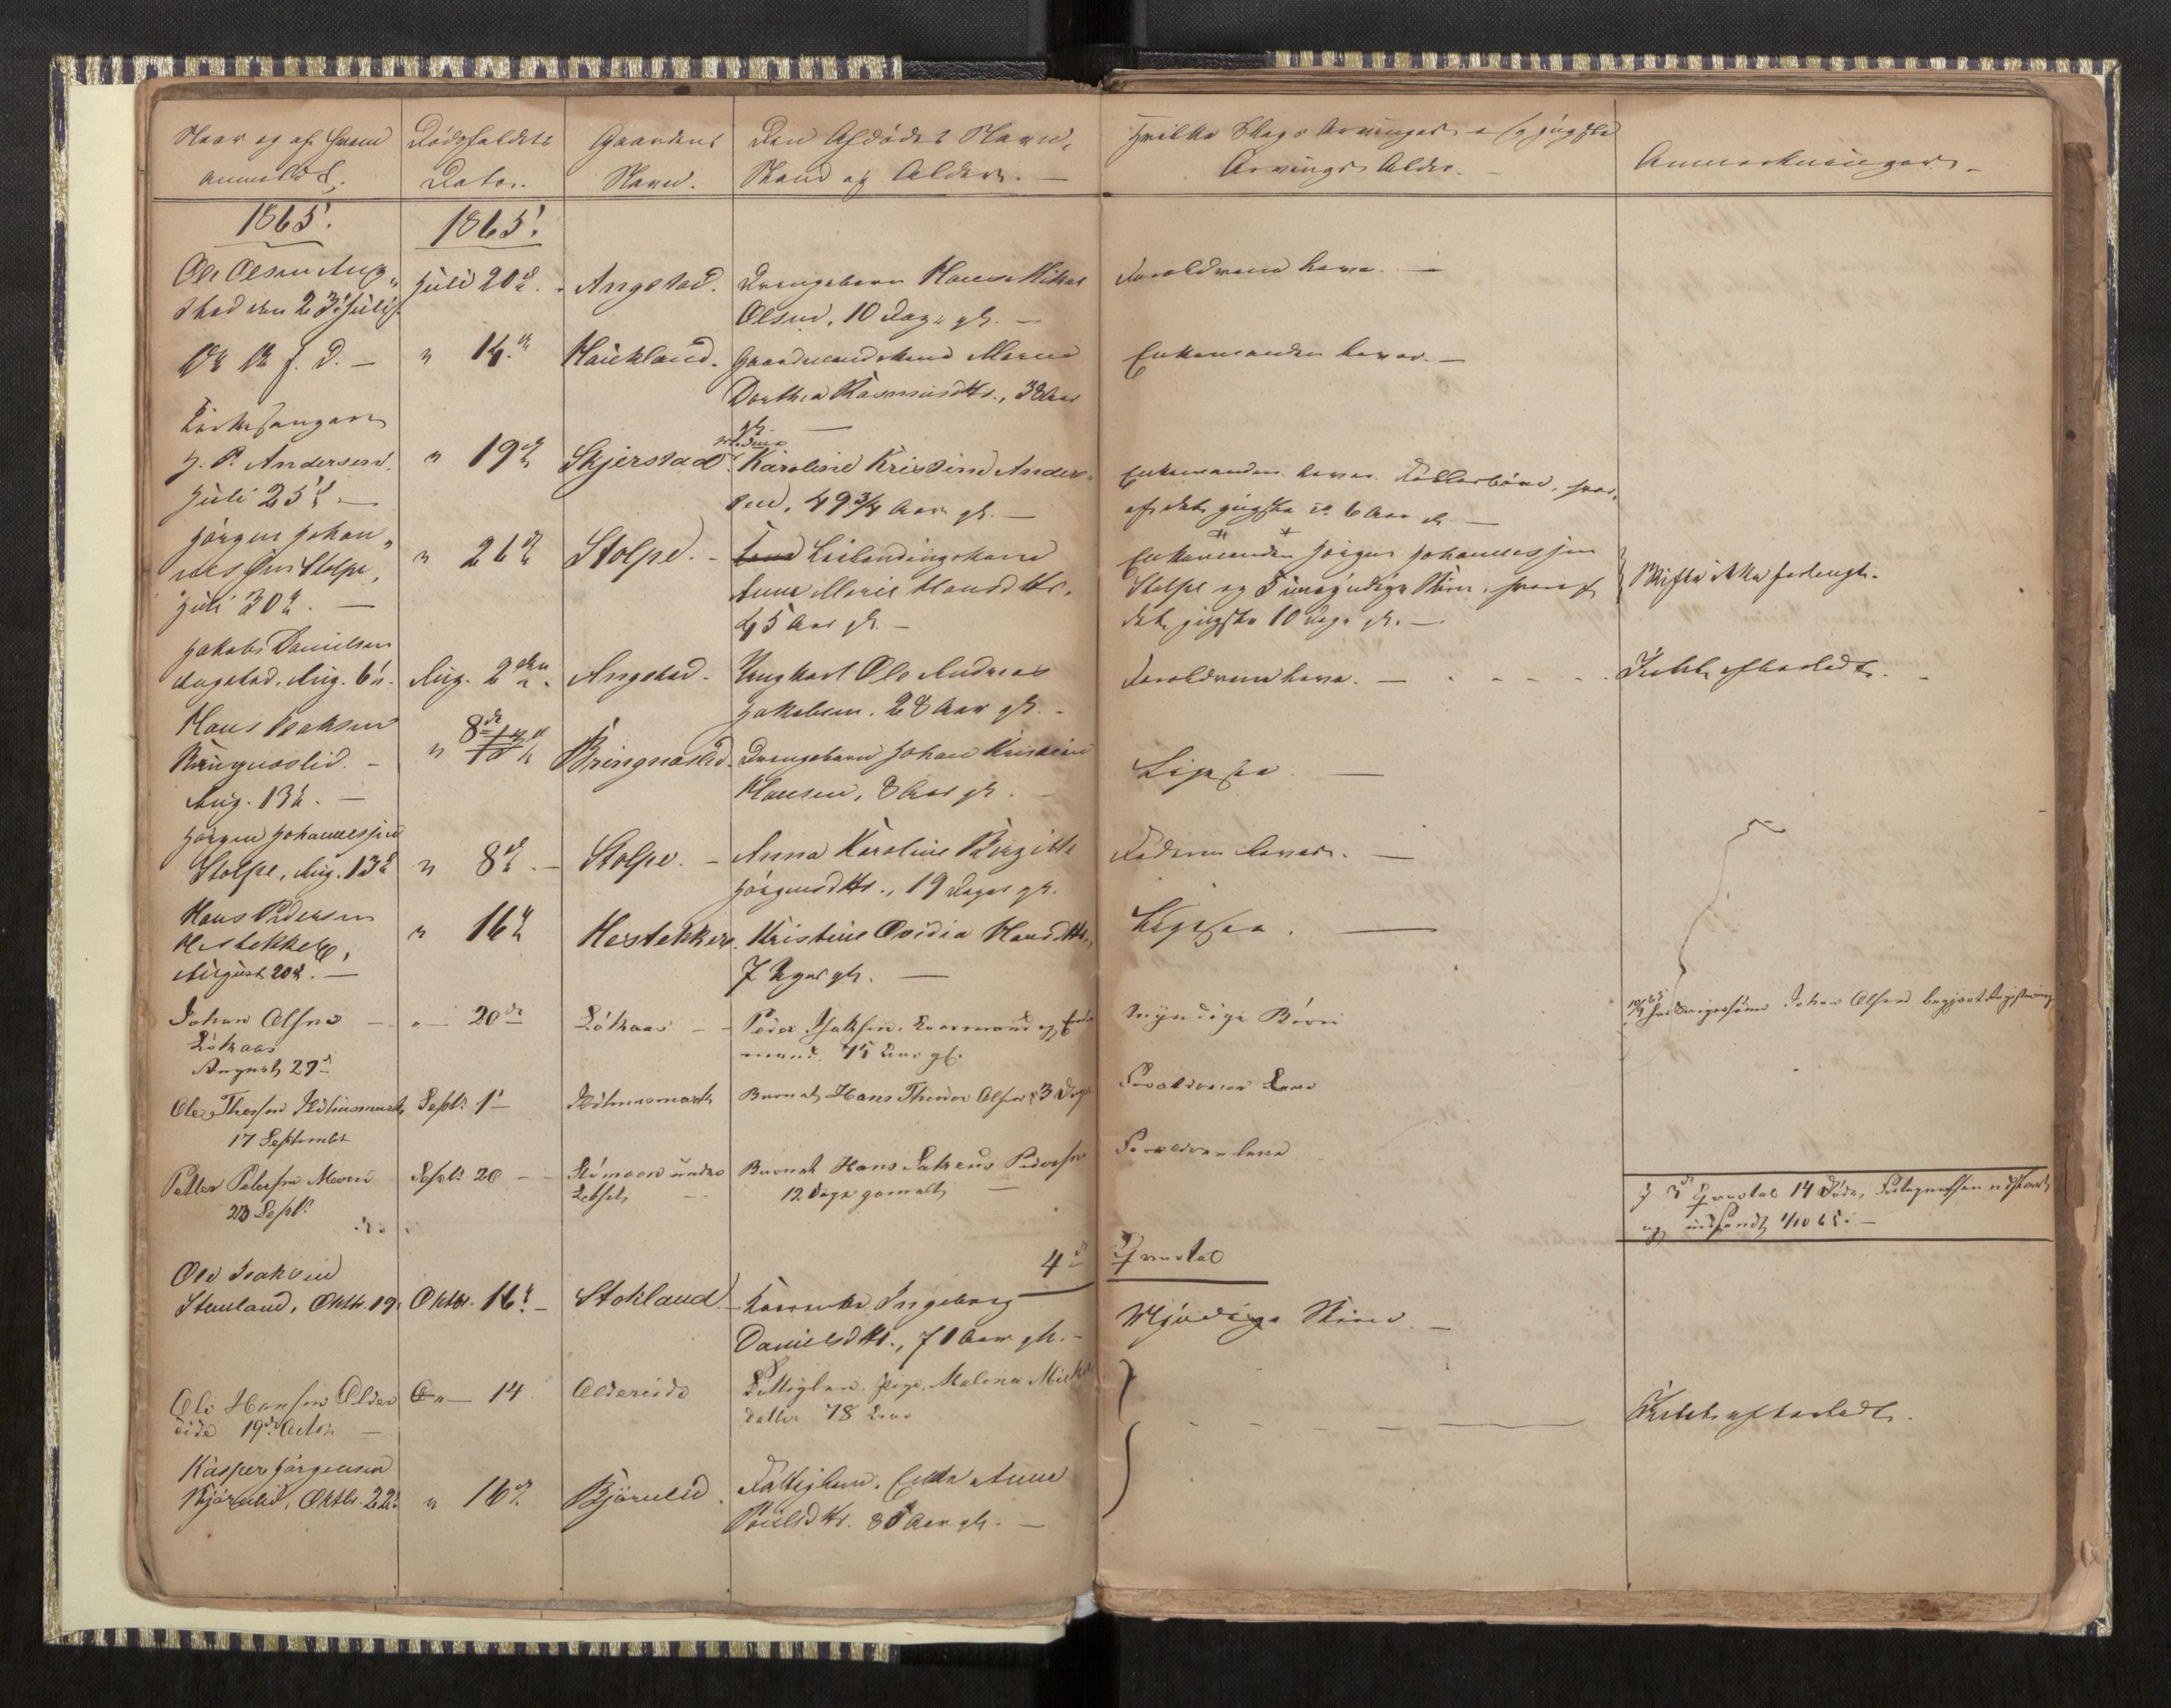 Naar og af hvem
anmeldt.
Dødsfaldets
Dato.
Gaardens
Navn.
Den Afdødes Navn,
Stand og Alder. —
Hvilke Slags Arvinger og yngste
Arvings Alder. —
Anmærkninger. —
1865. 1865.
Ole Olsen Ang-
stad den 23 Juli
Juli 20de. Angstad.
Drengebarn Hans Mikal
Olsen, 10 Dage gl. —
Forældrene leve. —
" 14de Haukland.
Gaardmandskone Maren
Dorthea Rasmusdtr., 38 Aar
gl. —
Enkemanden lever. —
Kirkesanger
J. P. Andersen.
Juli 25de. —
" 19de Skjerstad.
Karoline Kristine Ander-
sen, 49 3/4 Aar gl. —
Enkemanden lever. Fællesbørn, hvor-
af det yngste er 6 Aar gl. —
Jørgen Johan-
nessen Stolpe,
Juli 30te. —
" 26de Stolpe. —
Leilændingskone
Anne Marie Hansdtr.
45 Aar gl. —
Enkemanden Jørgen Johannessen
Stolpe og 5 umyndige Børn, hvoraf
det yngste 10 Dage gl. —
Skifte ikke forlangt.
Jakob Danielsen
Angstad, Aug. 6te.
Aug. 2den. Angstad.
Ungkarl Ole Andreas
Jakobsen, 28 Aar gl. —
Forældrene leve. —
Intet efterladt. —
Hans Isaksen
Bringnæslid. —
Aug. 13de. —
" 8de Bringnæslid.
Drengebarn Johan Kristian
Hansen, 8 Aar gl. —
Ligesaa. —
Jørgen Johannessen
Stolpe, Aug. 13de
" 8de. — Stolpe. —
Anna Karoline Birgitte
Jørgensdtr., 19 Dage gl.
Faderen lever. —
Hans Pedersen
Hestekker,
August 20de. —
" 16de Hestekker.
Kristine Ovidia Hansdtr.,
7 Uger gl. —
Ligesaa. —
Johan Olsen —
Løkaas
August 27de
" — 20de Løkaas — —
Peder Isaksen, Kaarmand og Enke
mand. 75 Aar gl.
Myndige Børn
Johan Olsen begjært Registrering
Ole Thersen
17 September
Septr 1ste
Barnet Hans Theodor Olsen 3 Dage
Forældrene leve
Petter Petersen Moen
23 Septr
Septr 20 —
Barnet Hans Pedersen
12 Dage gammelt —
Forældrene leve
I 3de Qvartal 14 Døde,
og indsendt 1/10 65. —
4de Qvartal
Ole Isaksen
Stenland, Oktbr. 19.
Oktbr. 16de — Stokland. —
Ingeborg
Danielsdtr., 71 Aar gl. —
Myndige Børn. —
Ole Hansen Alder
eide 19de Octbr —
" — 14 Aldereide
Fattiglem. Pige Malena Mikkels
datter 78 Aar
Intet efterladt.
Kasper Jørgensen
Bjørnlid, Oktbr. 22de
" 16de Bjørnlid.
Fattiglem. Enke Anne
Poulsdtr. 85 Aar gl. —